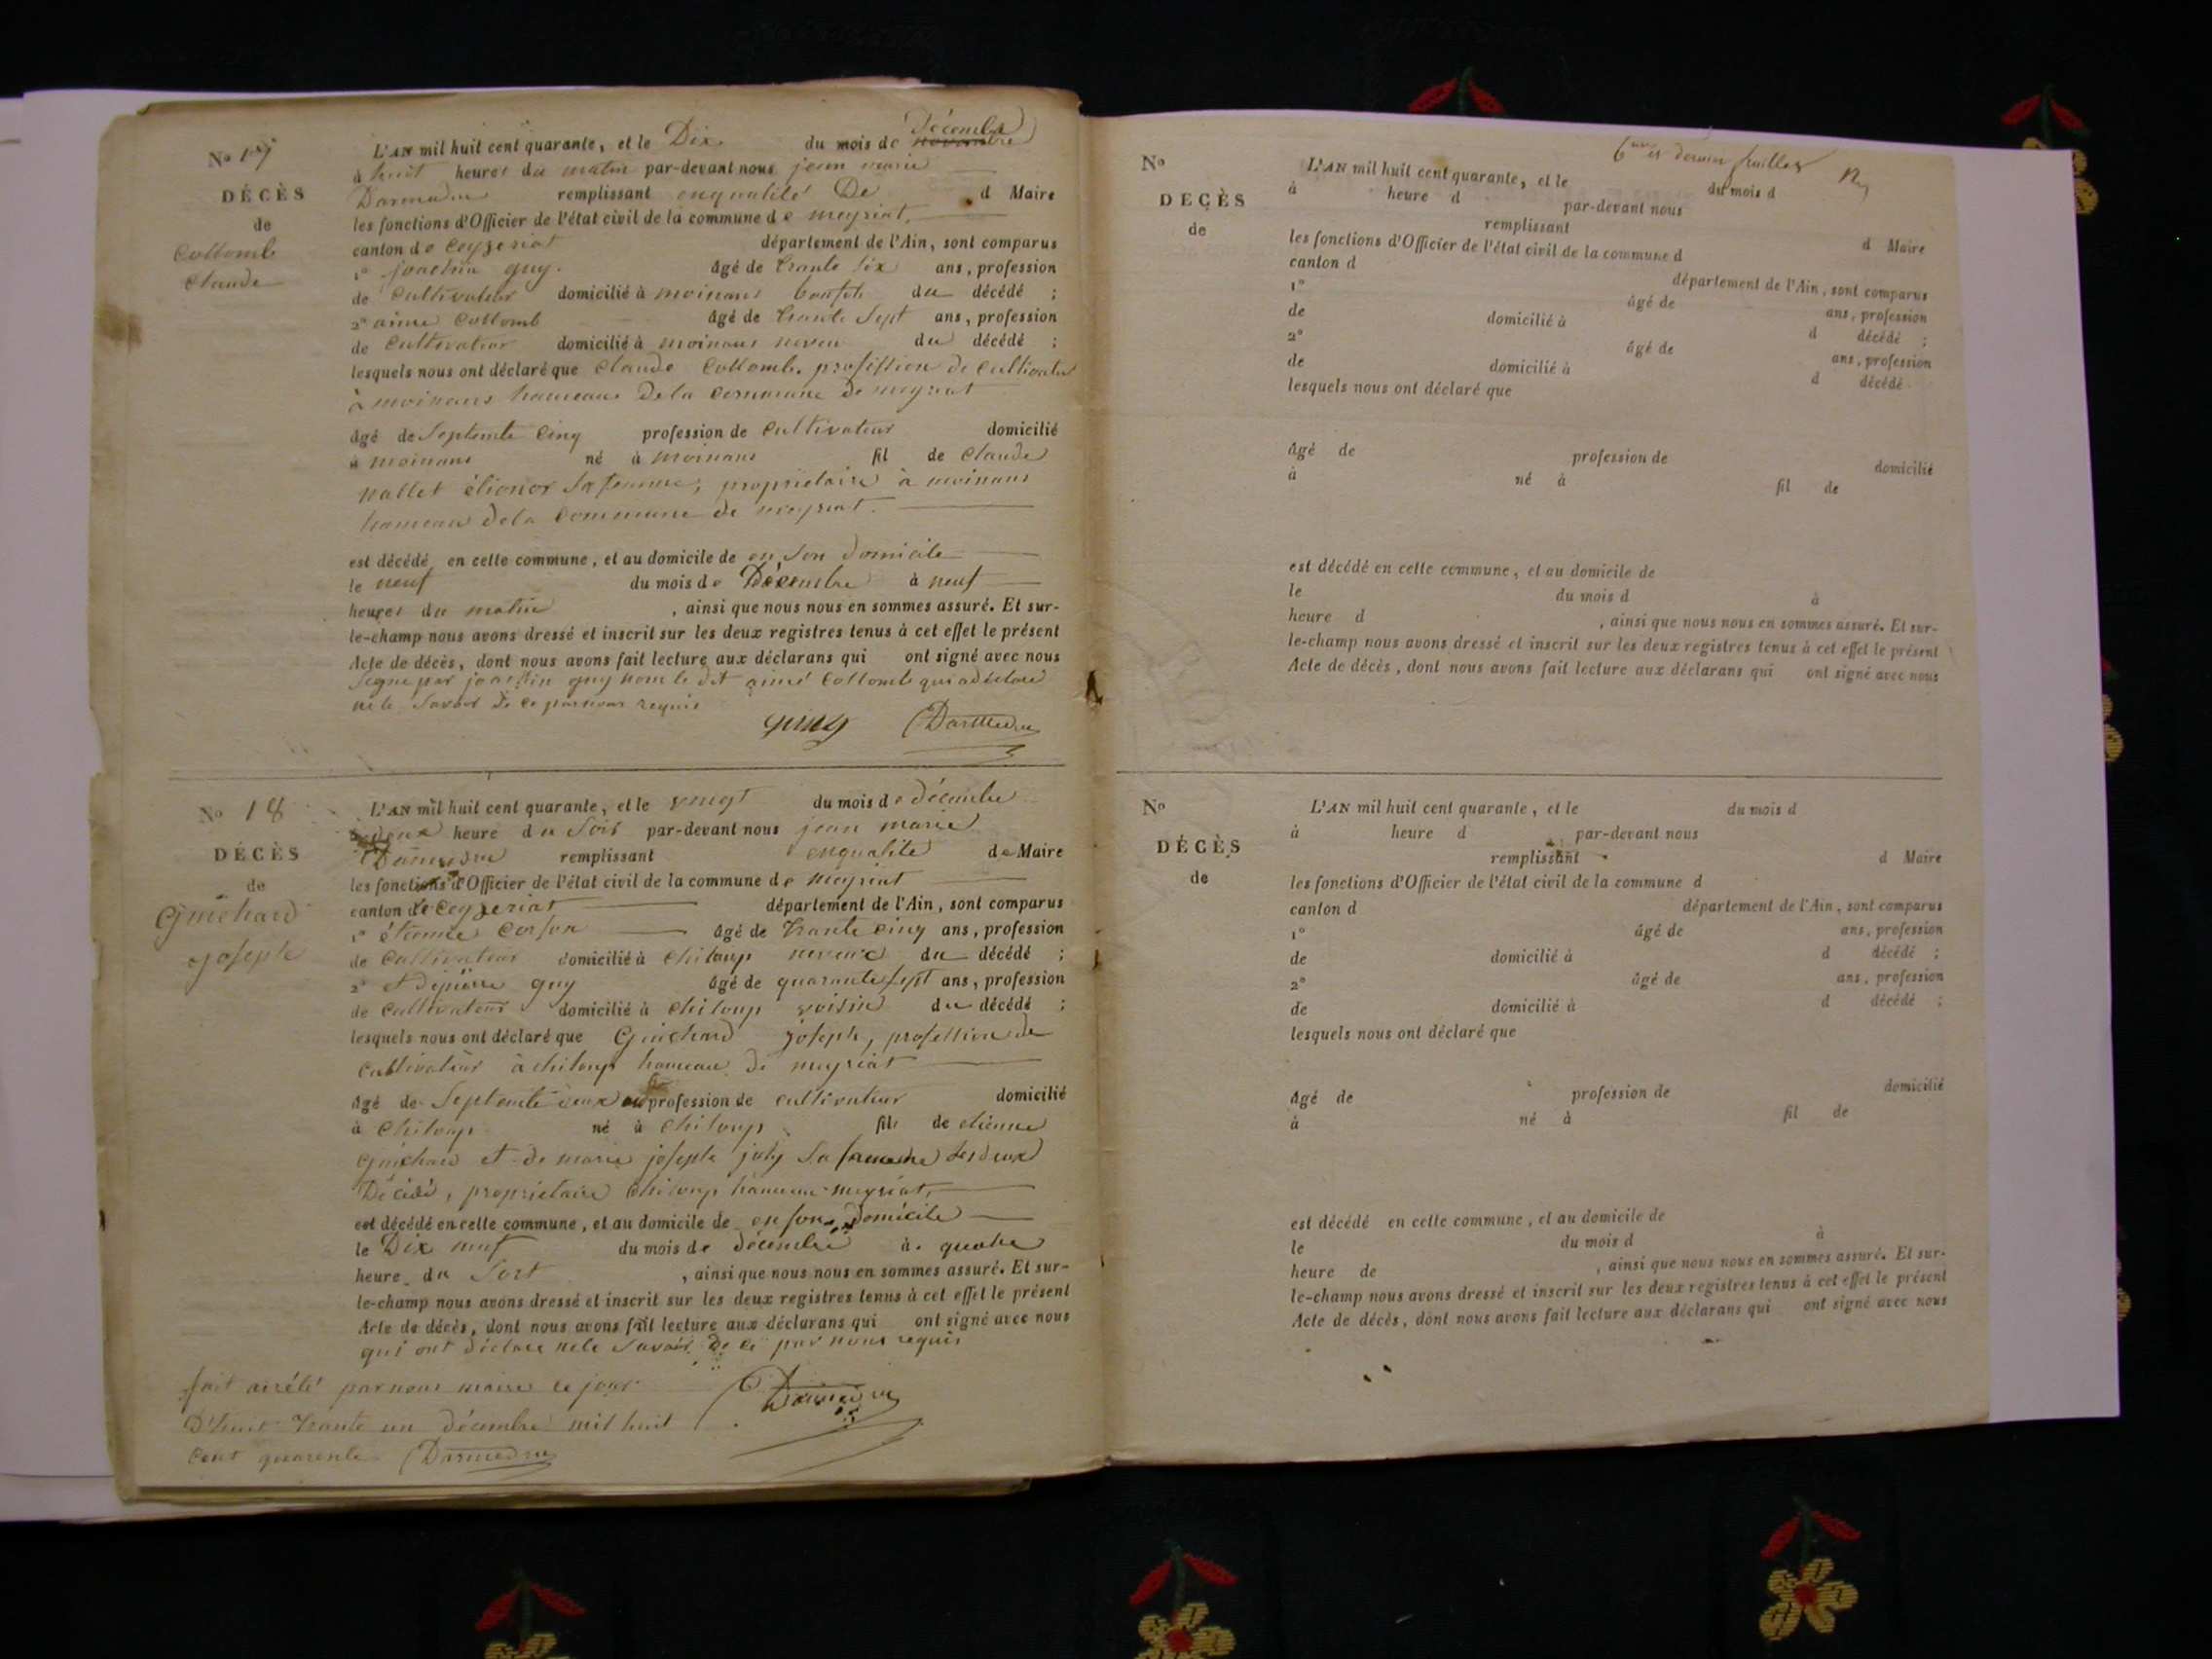 No 17
DÉCÈS
de
Collomb
Claude
L'AN mil huit cent quarante, et le Dix du mois de novembre Décembre
à huit heures du matin par-devant nous jean marie
Darmedru remplissant enqualité De d Maire
les fonctions d'Officier de l'état civil de la commune de meyriat,
canton de Ceyzeriat département de l'Ain, sont comparus
1° guy. âgé de trante six ans, profession
de Cultivateur domicilié à moinans du décédé ;
2° aimé Collomb âgé de trante Sept ans, profession
de Cultivateur domicilié à moinans neveu du décédé ;
lesquels nous ont déclaré que Claude Collomb. profession de Cultivateur
à moinans hameau De la Commune de meyriat
âgé de Septente Cinq profession de Cultivateur domicilié
à moinans né à moinans fil de Claude
élionor Sa femme, propriétaire à moinans
hameau de la Commune de meyriat.
est décédé en cette commune, et au domicile de en Son Domicile
le neuf du mois de Décembre à neuf
heures du matin , ainsi que nous nous en sommes assuré. Et sur-
le-champ nous avons dressé et inscrit sur les deux registres tenus à cet effet le présent
Acte de décès, dont nous avons fait lecture aux déclarans qui ont signé avec nous
Signe par guy non le dit aimé Collomb qui a déclaré
ne le Savoir De ce par nous requis
guy Darmedru
No 18
DÉCÈS
de
Guichard
joseph
L'AN mil huit cent quarante, et le vingt du mois de décembre
à deux heure du Soir par-devant nous jean marie
Darmedru remplissant enqualité de Maire
les fonctions d'Officier de l'état civil de la commune de meyriat
canton de Ceyzeriat département de l'Ain, sont comparus
1° étienne âgé de trante cinq ans, profession
de Cultivateur domicilié à Chiloup neveux du décédé ;
2° guy âgé de quarante sept ans, profession
de Cultivateur domicilié à Chiloup voisin du décédé ;
lesquels nous ont déclaré que Guichard joseph, profession de
Cultivateur à chiloup hameau de meyriat
âgé de Septente deux profession de cultivateur domicilié
à Chiloup né à Chiloup fils de etienne
Guichard et de marie josephe july Sa femme les deux
Décédé, propriétaire Chiloup hameau meyriat,
est décédé en cette commune, et au domicile de en son Domicile
le Dix neuf du mois de décembre à quatre
heure du Soir , ainsi que nous nous en sommes assuré. Et sur-
le-champ nous avons dressé et inscrit sur les deux registres tenus à cet effet le présent
Acte de décès, dont nous avons fait lecture aux déclarans qui ont signé avec nous
qui ont déclaré ne le Savoir De ce par nous requis
Darmedru
fait arrêté par nous maire ce jour
D'huit trante un décembre mil huit
Cent quarente Darmedru
derniers feuilles
No
DÉCÈS
de
L'AN mil huit cent quarante, et le du mois d
à heure d par-devant nous
remplissant d Maire
les fonctions d'Officier de l'état civil de la commune d
canton d département de l'Ain, sont comparus
1° âgé de ans, profession
de domicilié à d décédé ;
2° âgé de ans, profession
de domicilié à d décédé
lesquels nous ont déclaré que
âgé de profession de domicilié
à né à fil de
est décédé en cette commune, et au domicile de
le du mois d à
heure d , ainsi que nous nous en sommes assuré. Et sur-
le-champ nous avons dressé et inscrit sur les deux registres tenus à cet effet le présent
Acte de décès, dont nous avons fait lecture aux déclarans qui ont signé avec nous
No
DÉCÈS
de
L'AN mil huit cent quarante, et le du mois d
à heure d par-devant nous
remplissant d Maire
les fonctions d'Officier de l'état civil de la commune d
canton d département de l'Ain, sont comparus
1° âgé de ans, profession
de domicilié à d décédé ;
2° âgé de ans, profession
de domicilié à d décédé ;
lesquels nous ont déclaré que
âgé de profession de domicilié
à né à fil de
est décédé en cette commune, et au domicile de
le du mois d à
heure de , ainsi que nous nous en sommes assuré. Et sur-
le-champ nous avons dressé et inscrit sur les deux registres tenus à cet effet le présent
Acte de décès, dont nous avons fait lecture aux déclarans qui ont signé avec nous